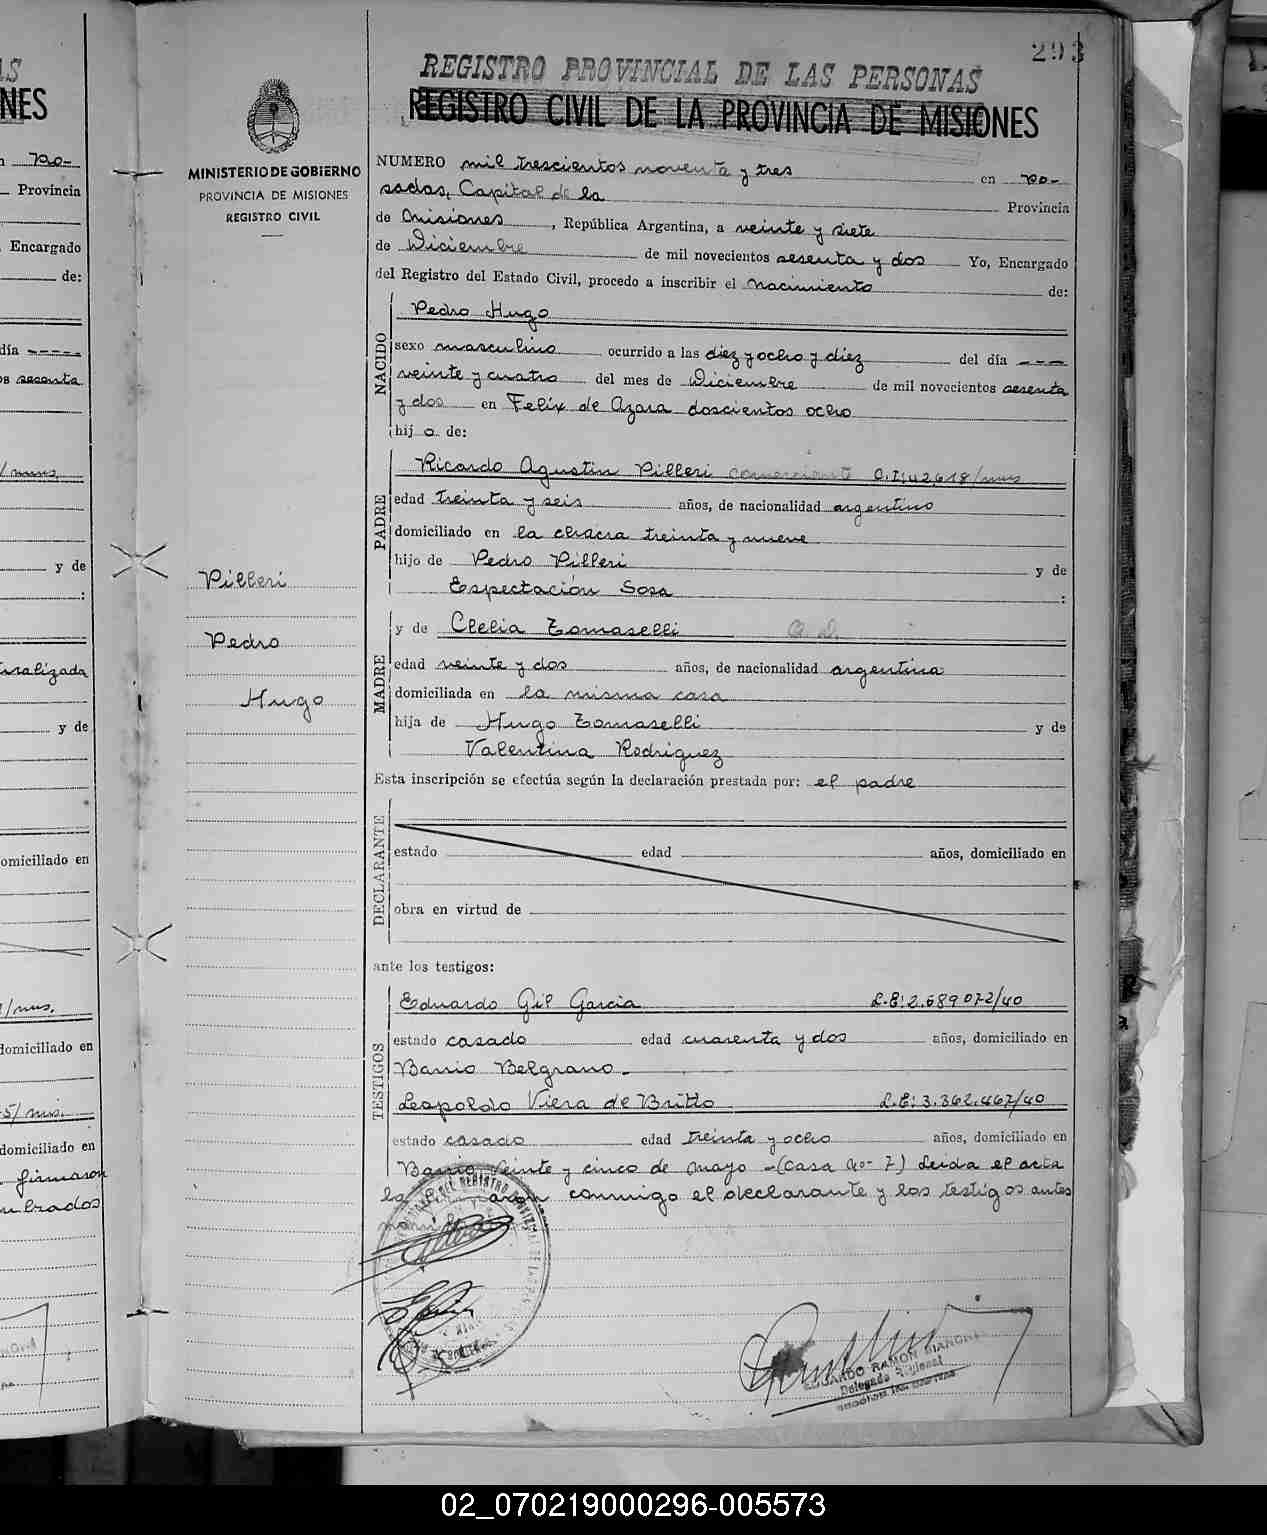 293
REGISTRO PROVINCIAL DE LAS PERSONAS
REGISTRO CIVIL DE LA PROVINCIA DE MISIONES
MINISTERIO DE GOBIERNO
PROVINCIA DE MISIONES
REGISTRO CIVIL
NUMERO mil trescientos noventa y tres en Po-
sadas, Capital de la Provincia
de Misiones, República Argentina, a veinte y siete
de Diciembre de mil novecientos sesenta y dos Yo, Encargado
del Registro del Estado Civil, procedo a inscribir el nacimiento de:
NACIDO
Pedro Hugo
sexo masculino ocurrido a las diez y ocho y diez del día ---
veinte y cuatro del mes de Diciembre de mil novecientos sesenta
y dos en Felix de Azara doscientos ocho
hijo de:
PADRE
Ricardo Agustin Pilleri comerciante C.I: 42.618/mns
edad treinta y seis años, de nacionalidad argentino
domiciliado en la chacra treinta y nueve
hijo de Pedro Pilleri y de
Espectación Sosa :
Pilleri
Pedro
Hugo
MADRE
y de Clelia Tomaselli Q. D.
edad veinte y dos años, de nacionalidad argentina
domiciliada en la misma casa
hija de Hugo Tomaselli y de
Valentina Rodriguez
Esta inscripción se efectúa según la declaración prestada por: el padre
DECLARANTE
estado edad años, domiciliado en
obra en virtud de
ante los testigos:
TESTIGOS
Eduardo Gil Garcia L.E: 2.689.072/40
estado casado edad cuarenta y dos años, domiciliado en
Barrio Belgrano.-
Leopoldo Viera de Britto L.E: 3.362.467/40
estado casado edad treinta y ocho años, domiciliado en
Barrio Veinte y cinco de Mayo -(Casa No- 7) Leida el acta
la conmigo el declarante y los testigos antes
EDGARDO RAMON BIANCHI
Delegado Regional
02_070219000296-005573